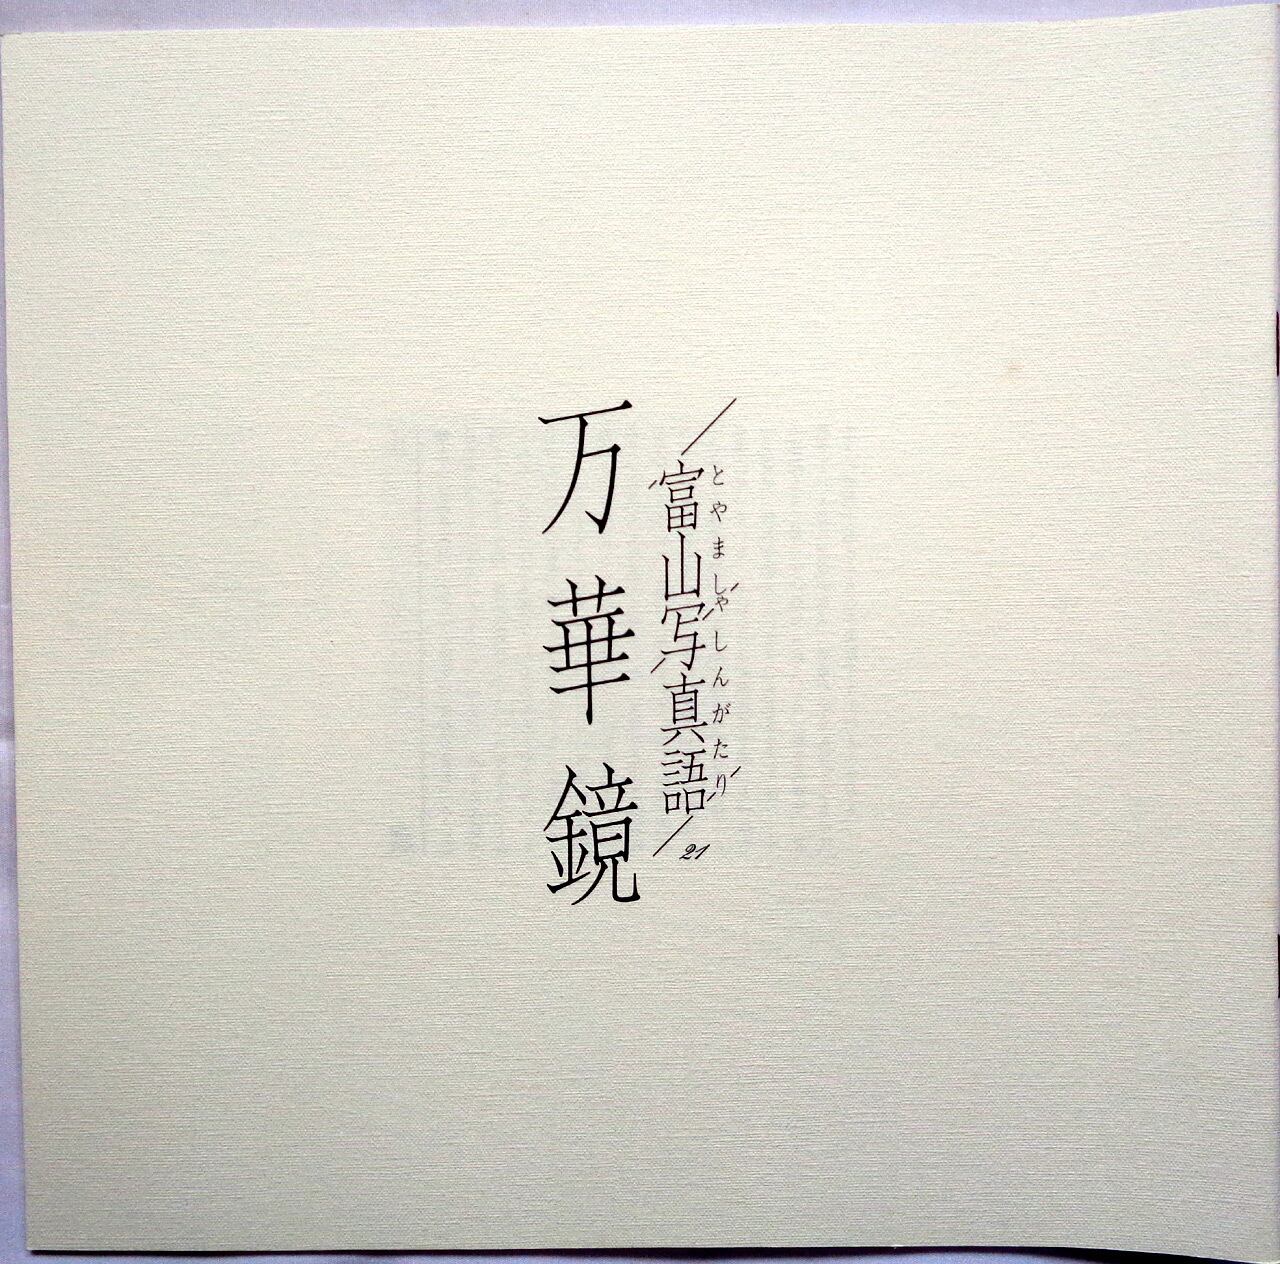 とやましゃしんがたり
富山写真語
21
万華鏡